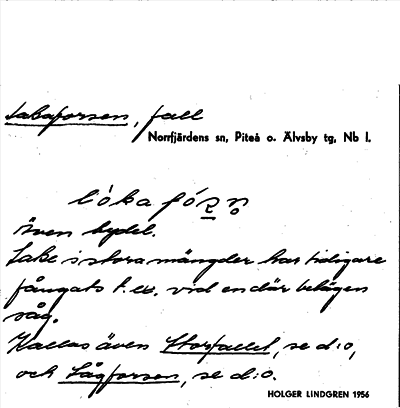 Lakaforsen, fall
Norrfjärdens sn, Piteå o. Älvsby tg, Nb l.
lòka fórs̲n̥
Även bydel.
Lake i stora mängder har tidigare
fångats t.ex. vid en där belägen
såg.
Kallas även Storfallet, se d:o,
och Sågforsen, se d:o.
HOLGER LINDGREN 1956